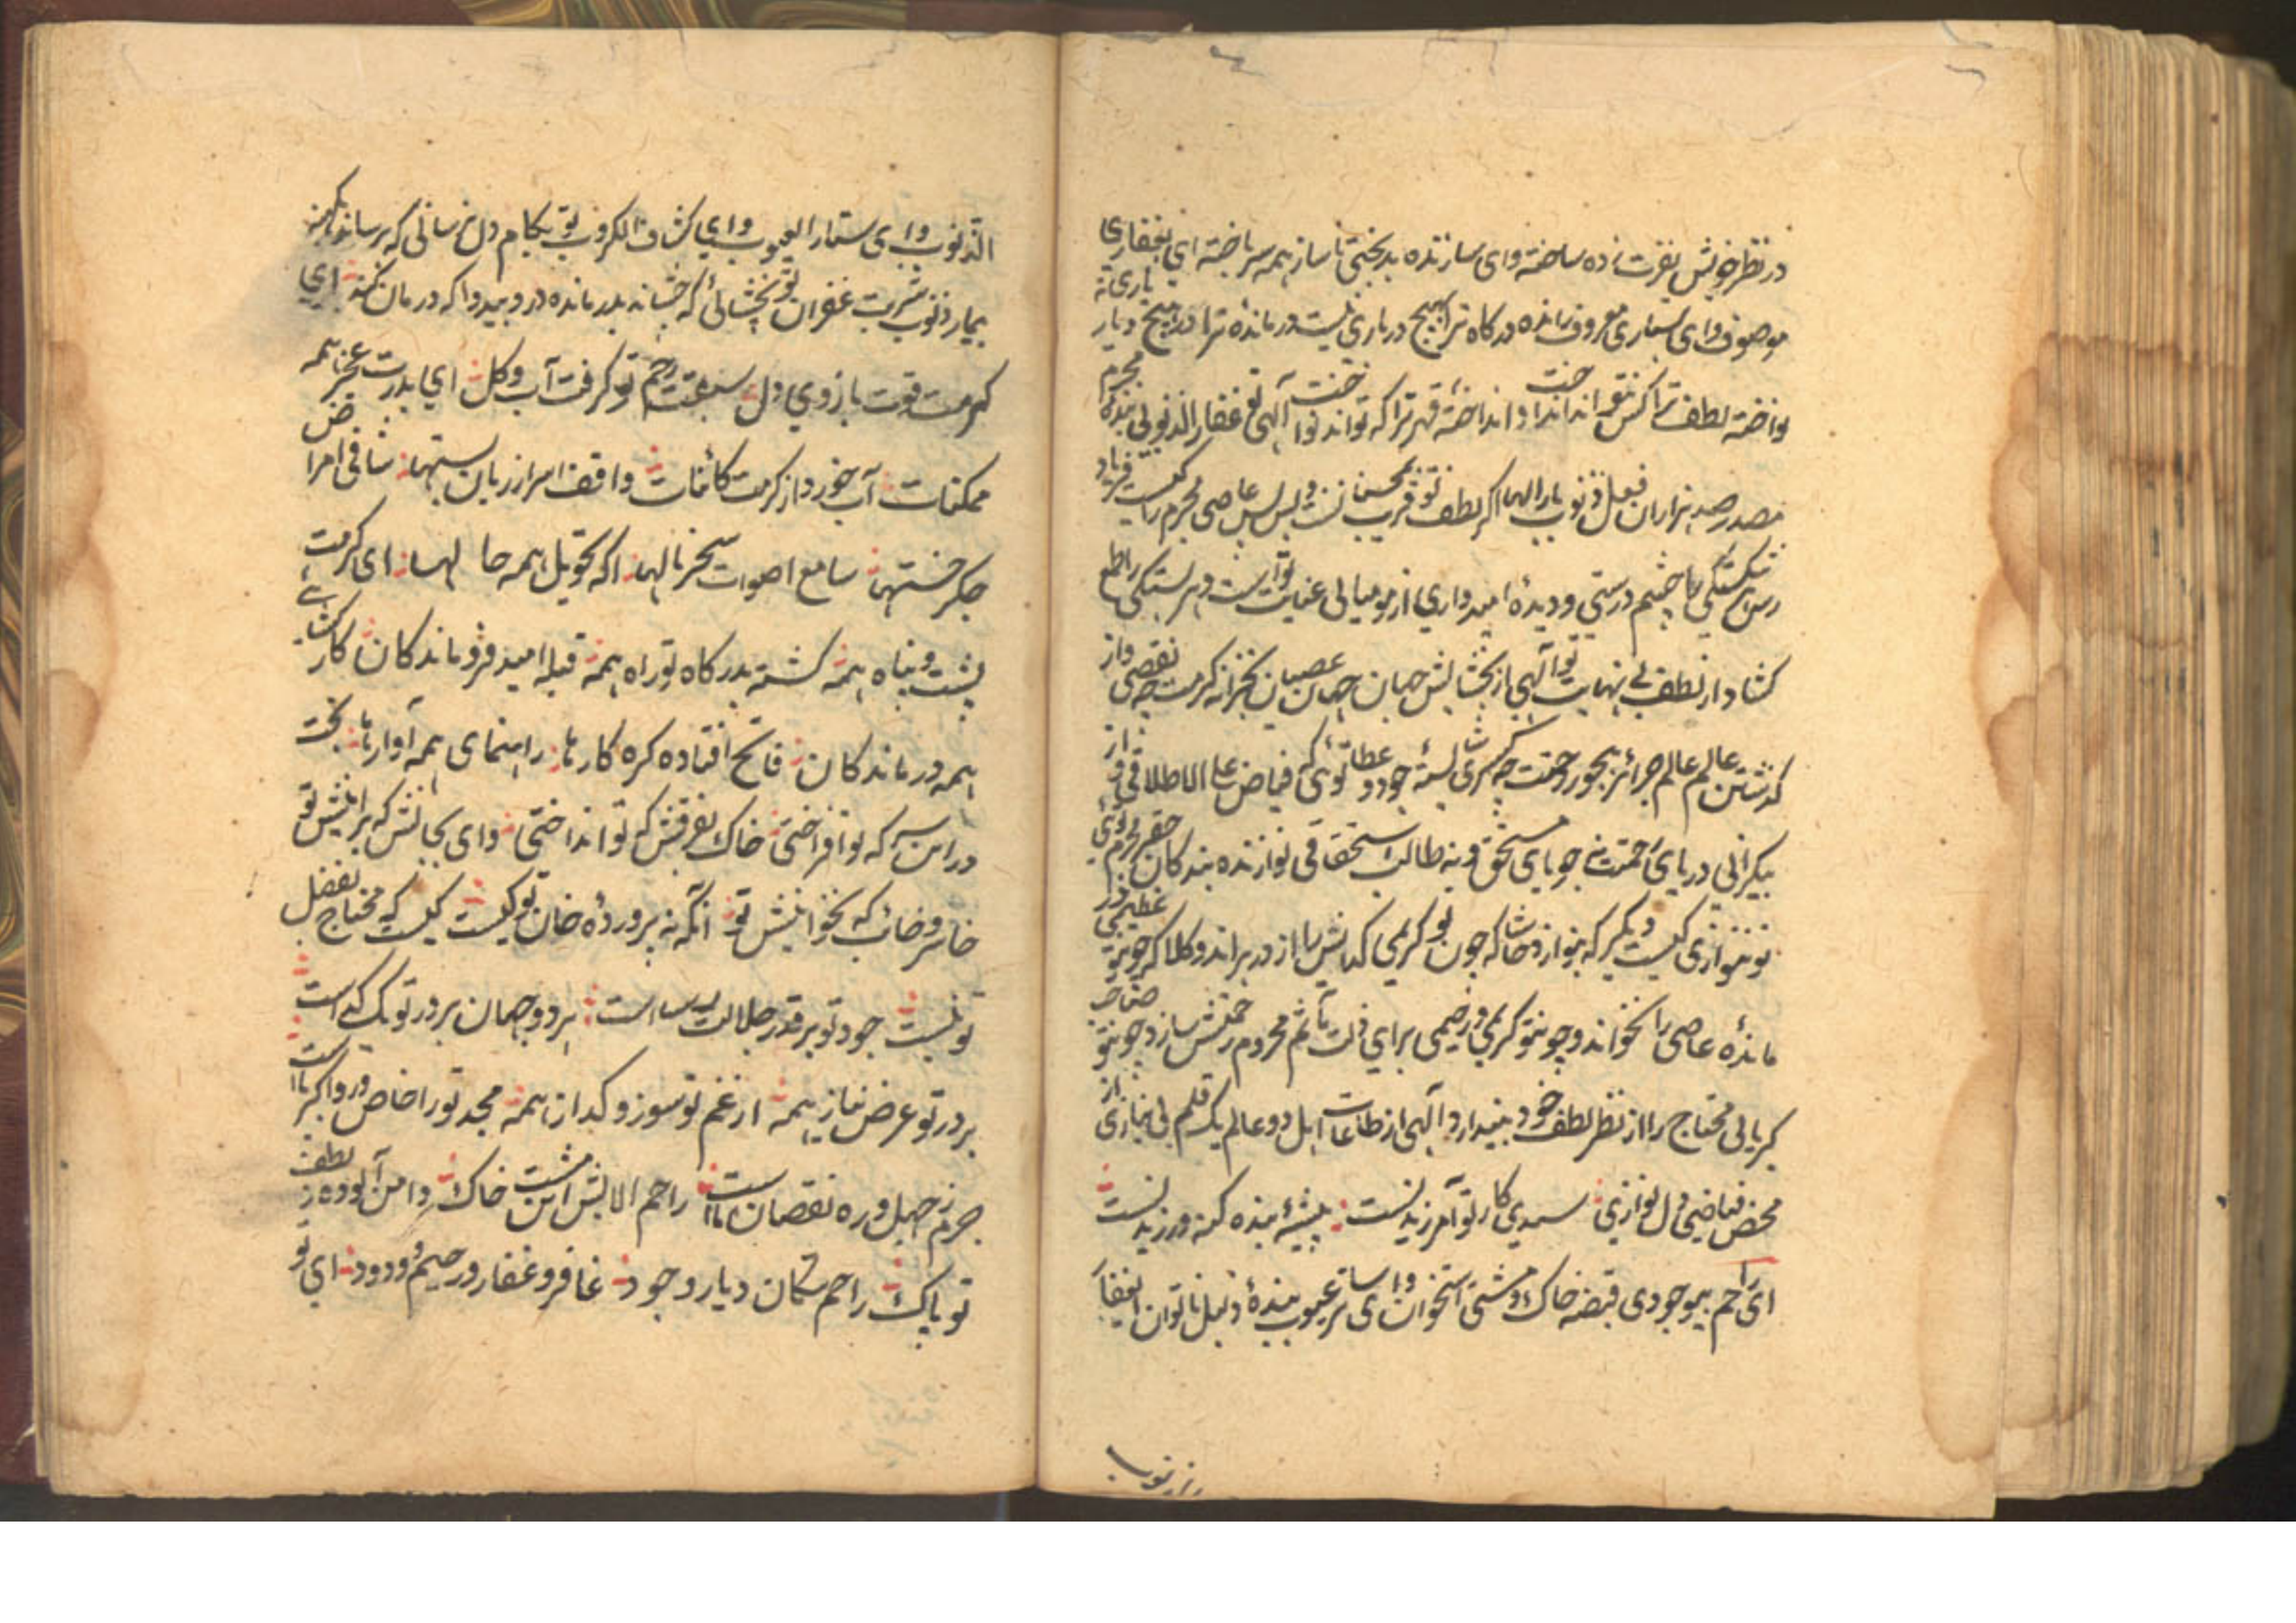 در نظر خویش نفرت زده ساخته وای سازنده بدبختی با ساز همه سر باخته ای بغفاری
موصوف وای ستاری معروف رانده درگاه ترا هیچ درباری نیست درمانده ترا در هیچ دیار یاری نه
نواخته لطف ترا کس نتواند انداخت و انداخته قهر ترا که تواند نواخت آلهی تو غفار الذنوبی بنده مجرم
مصدر صد هزاران فعل ذنوب بارالها اگر لطف تو قریب محسنانست و بس پس عاصی مجرم را کیست فریاد
رس شکستگی را چشم درستی و دیده امیدواری از مومیائی عنایت تو است و هر بستگی را طمع
کشاد از لطف بی نهایت تو آلهی از بخشایش جهان جهان عصیان بخزانه کرمت چه نقصی و از
گذشتن عالم عالم جرائم ببحور رحمت چه کمی شایسته جود و عطا توئی که فیاض علی الاطلاقی و از
بیکرانی دریای رحمت نه جویای مستحق و نه طالب استحقاقی نوازنده بندگان حقیر مجرم توئی
تو ننوازی کیست دیگر که بنوازد حاشا که چون تو کریمی گدایش را از در براند و کلا که چون تو عظیمی در
مانده عاصی را نخواند و چو تو کریمی و رحیمی برای ذلت ماثم محروم رحمتش سازد و چو تو صاحب
کبریائی محتاج را از نظر لطف خود بیندازد آلهی از طاعات اهل دو عالم یک قلم بی نیازی از
محض فیاضی دل نوازی سیدی کار تو آمرزیدنست پیشه بنده گنه ورزیدنست
ای راحم بیوجودی قبضه خاک و مشتی استخوان و ای ساتر عیوب بنده ذلیل ناتوان ای غفار
الذنوب و ای ستار العیوب و ای کشاف الکروب تو بکام دل نرسانی که رساند اگر نه
بیمار ذنوب شربت غفران تو بخشائی که چشاند بدر مانده درد و بیدوا که درمان کند ای
کرمت قوت بازوی دل سبقت رحم تو گرفت آب و گل ای بدرت عجز همه
ممکنات آب خورد از کرمت کائنات واقف اسرار زبان بستها شافی امراض
جگر خستها سامع اصوات سحر نالها آگه تحویل همه حالها ای کرمت
پشت و پناه همه گشته بدرگاه تو راه همه قبله امید فرو ماندگان کار کشای
همه درماندگان فاتح افتاده گره کارها راهنمای همه آوارها بخت
در آن سر که تو افراختی خاک بفرقش که تو انداختی وای بجانش که برانیش تو
خاسر و خائب که نخوانیش تو آنکه نه پرورده خوان تو کیست کیست که محتاج تفضل
تو نیست جود تو بر قدر جلالت بس است هر دو جهان بر در تو یک گداست
بر در تو عرض نیاز همه از غم تو سوز و گداز همه مجد تو را خاص ورودا کبریاست
جرم ز جهل و ره نقصان ماست راحم الایش این مشت خاک دامن آلوده ز لطف
تو پاک راحم سکان دیار وجود غافر و غفار و رحیم و ودود ای تو